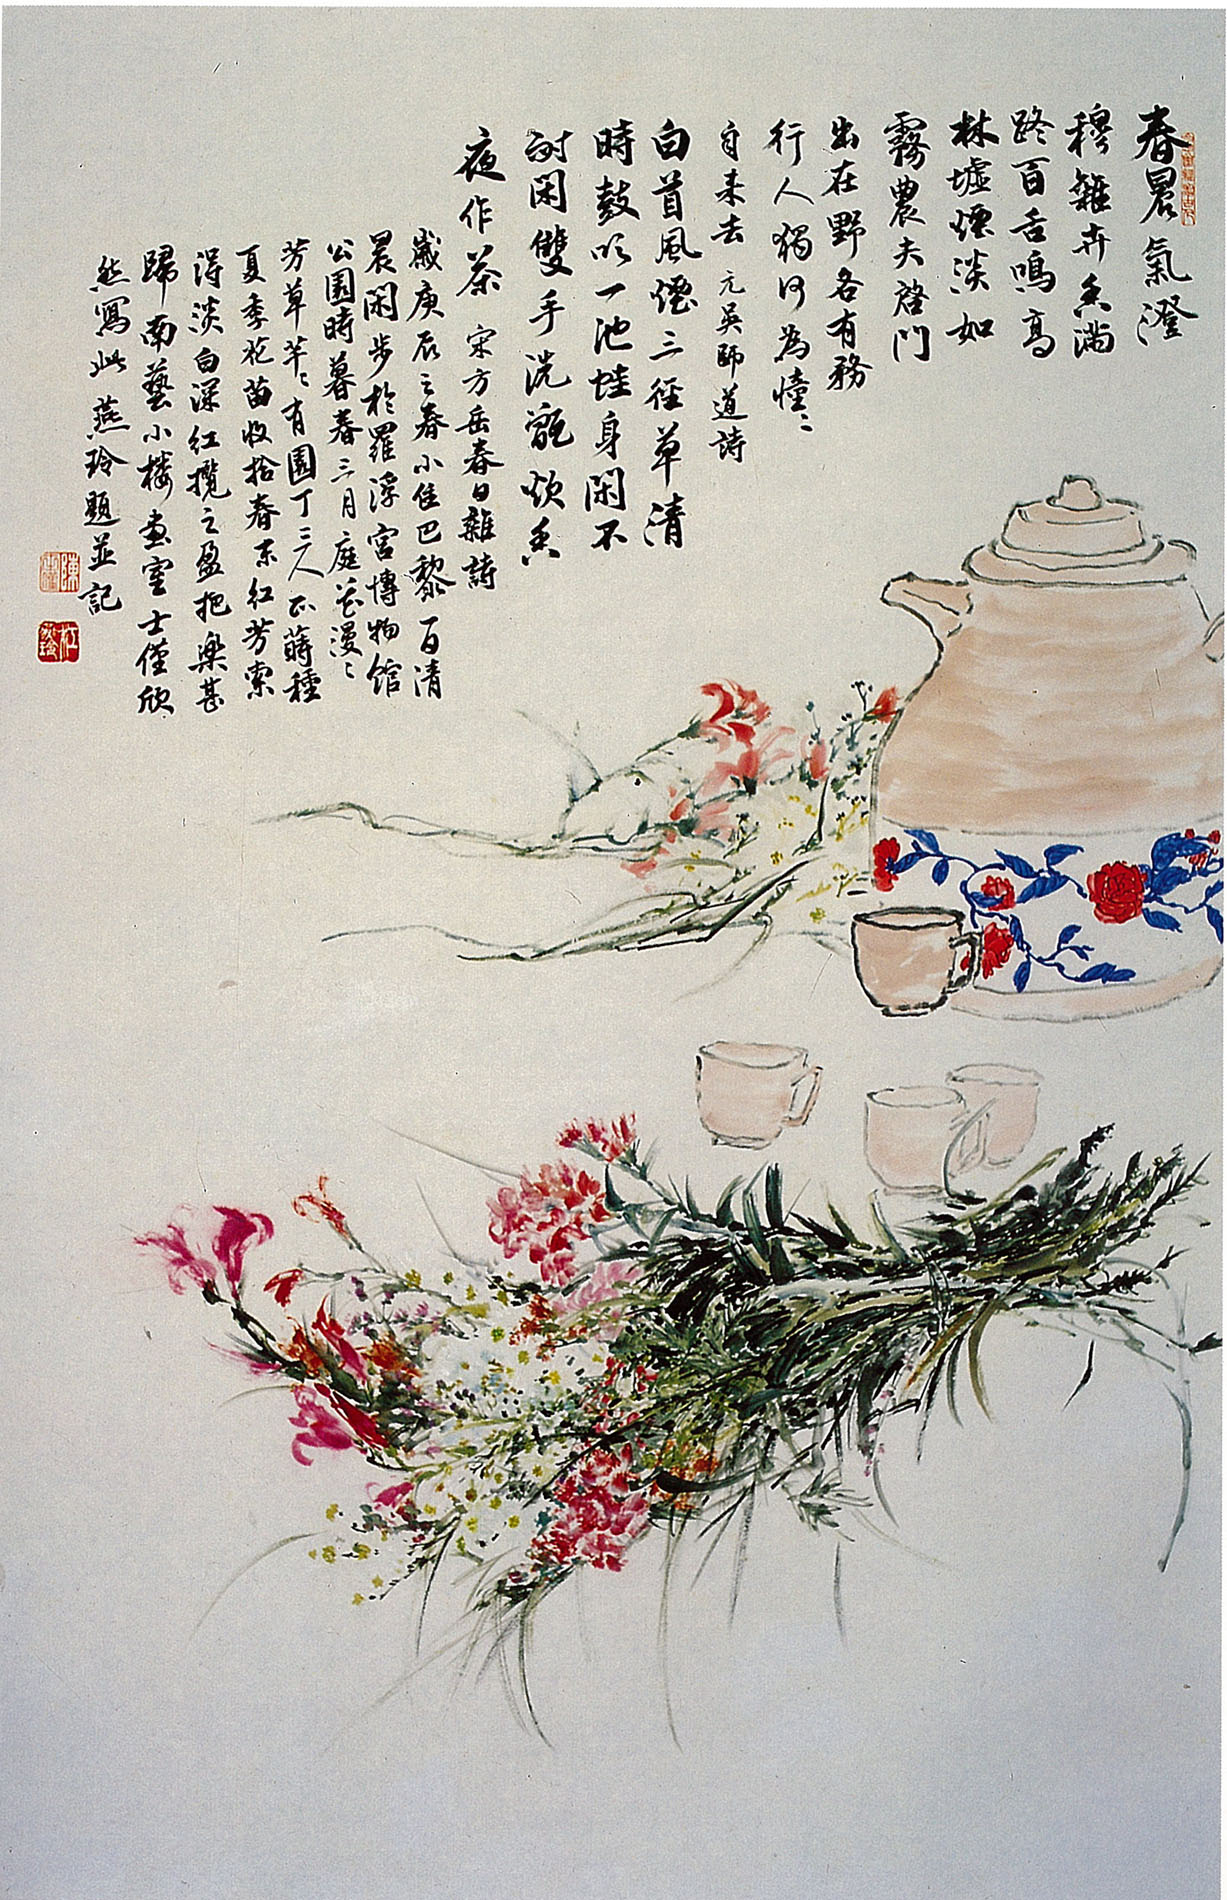 春晨氣澄
穆雜卉香滿
路百舌鳴高
林墟煙淡如
霧農夫啓門
出在野各有務
行人獨何為憧〻
自来去 元吳師道詩
白首風煙三徑草清
時鼓吹一池蛙身閑不
耐閑雙手洗甌炊香
夜作茶 宋方岳春日雜詩
歲庚辰之春小住巴黎百清
晨閑步於羅浮宮博物館
公園時暮春三月庭花漫〻
芳草芊〻有園丁三人正蒔種
夏季花苗收拾春末紅芳索
得淡白深紅攬之盈把樂甚
歸南藝小樓畫室士僅欣
然寫此 燕玲題並記